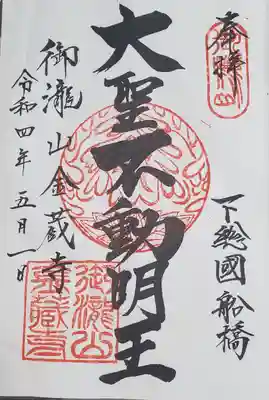 奉拝
下総國船橋
大聖不動明王
御瀧山金蔵寺
令和四年五月一日
御瀧山
金蔵寺